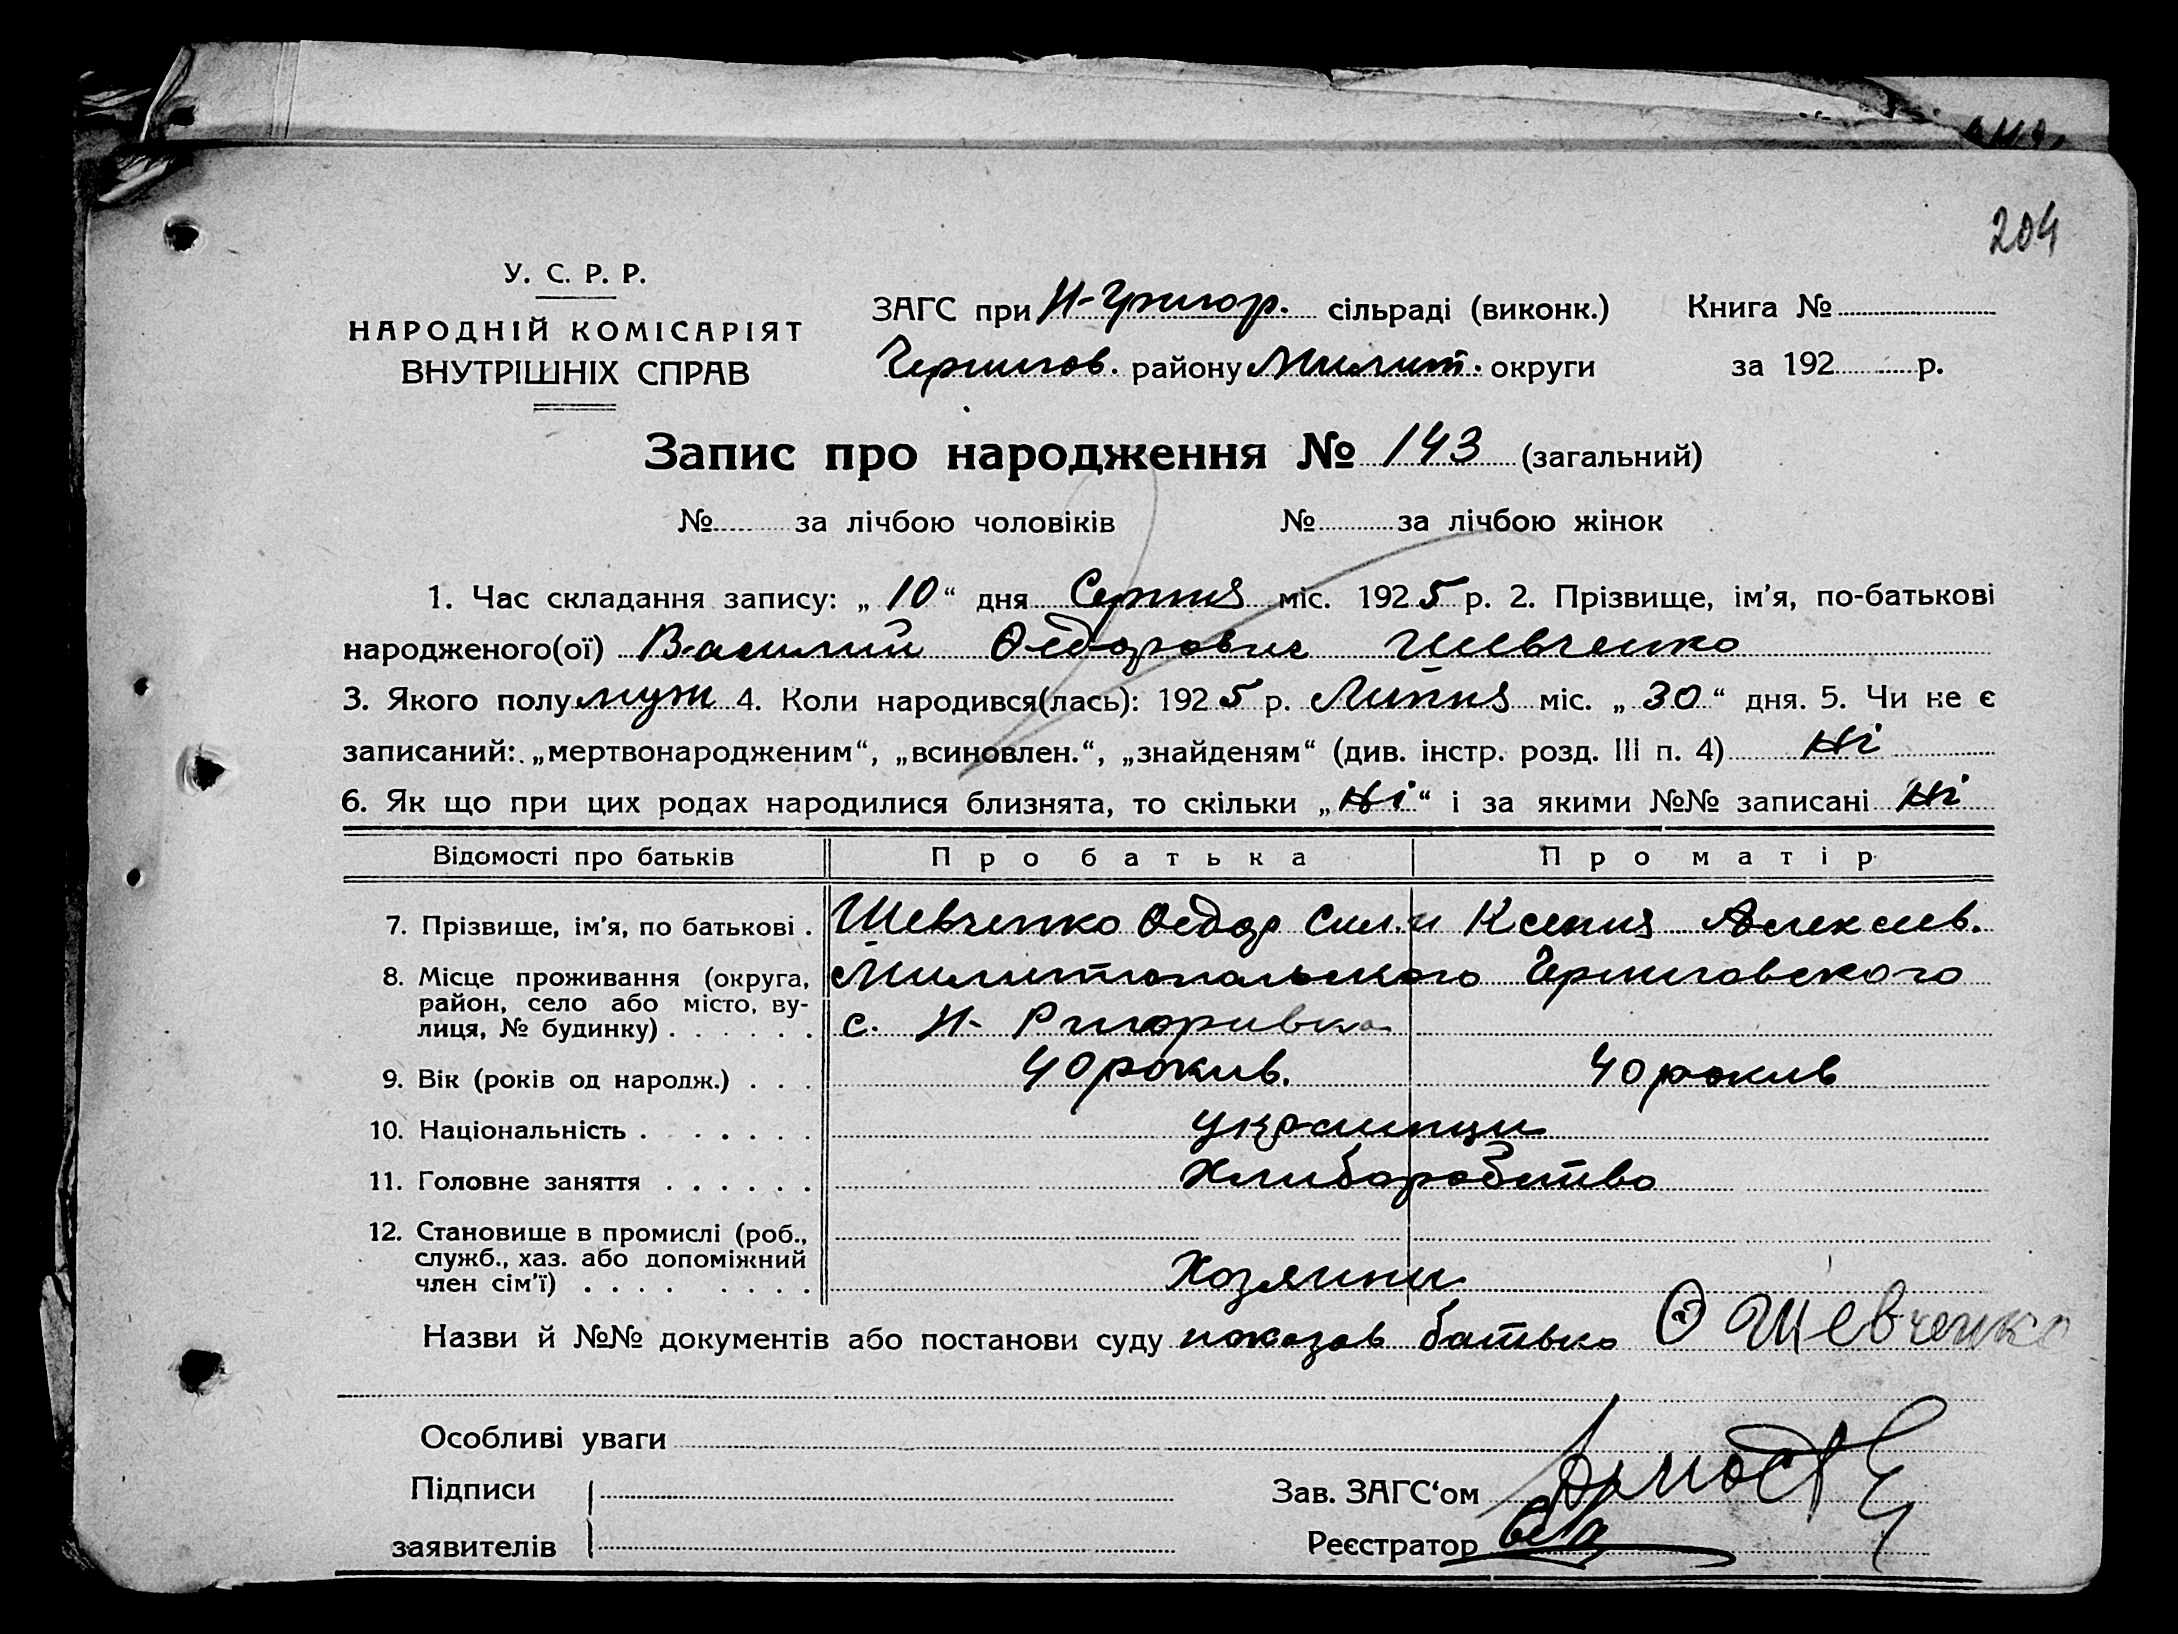 204
У. С. Р. Р.
НАРОДНІЙ КОМІСАРІЯТ
ВНУТРІШНІХ СПРАВ
ЗАГС при Н-Григор. сільраді (виконк.) Книга №
Чернигов. району Мелит. округи за 192 р.
Запис про народження № 143 (загальний)
№ за лічбою чоловіків № за лічбою жінок
1. Час складання запису: „ 10 “ дня Серпня міс. 192 5 р. 2. Прізвище, ім’я, по-батькові
народженого(ої) Василий Федорович Шевченко
3. Якого полу муж 4. Коли народився(лась): 192 5 р. Липня міс. „ 30 “ дня. 5. Чи не є
записаний: „мертвонародженим“, „всиновлен.“, „знайденям“ (див. інстр. розд. III п. 4) Ні
6. Як що при цих родах народилися близнята, то скільки „ Ні “ і за якими №№ записані Ні
Відомості про батьків Про батька Про матір
7. Прізвище, ім’я, по батькові . Шевченко Федор Сил. и Ксения Алексеев.
8. Місце проживання (округа, Мелитопольского Черниговского
район, село або місто, ву-
лиця, № будинку) . . . . . . с. Н- Григоривка
9. Вік (років од народж.) . . . 40 рокив. 40 рокив
10. Національність . . . . . . . украинци
11. Головне заняття . . . . . . Хлиборобство
12. Становище в промислі (роб.,
служб., хаз. або допоміжний
член сім’ї) . . . . . . . . Хозяини
Назви й №№ документів або постанови суду показав батько Ф Шевченко
Особливі уваги
Підписи Зав. ЗАГС‘ом
заявителів Реєстратор